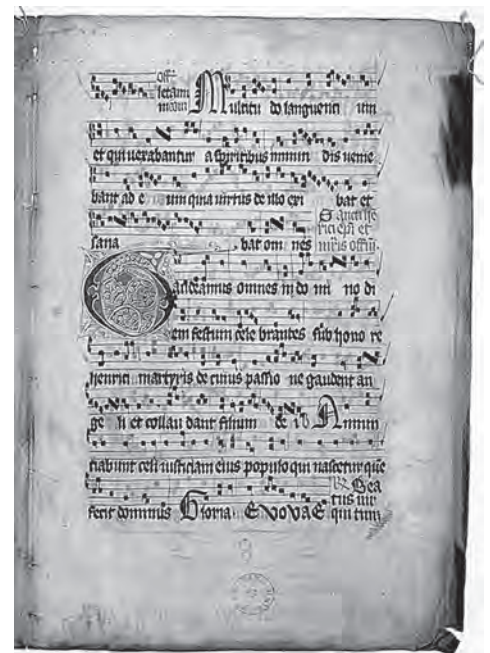 Off
letam
mini
Multitu do languenti um
et qui uexabantur a spiritibus inmun dis uenie
bant ad e um quia uirtus de illo exi bat et
rici epi et
sana bat om nes mris offm
Gaudeamus omnes in do mi no di
em festum cele brantes sub hono re
henrici martyris de cuius passio ne gaudent an
ge li et collau dant filium Annun
ciabunt celi iusticiam eius populo qui nascetur que
Bea
tus uir
fecit dominus Gloria EVOVAE qui tim